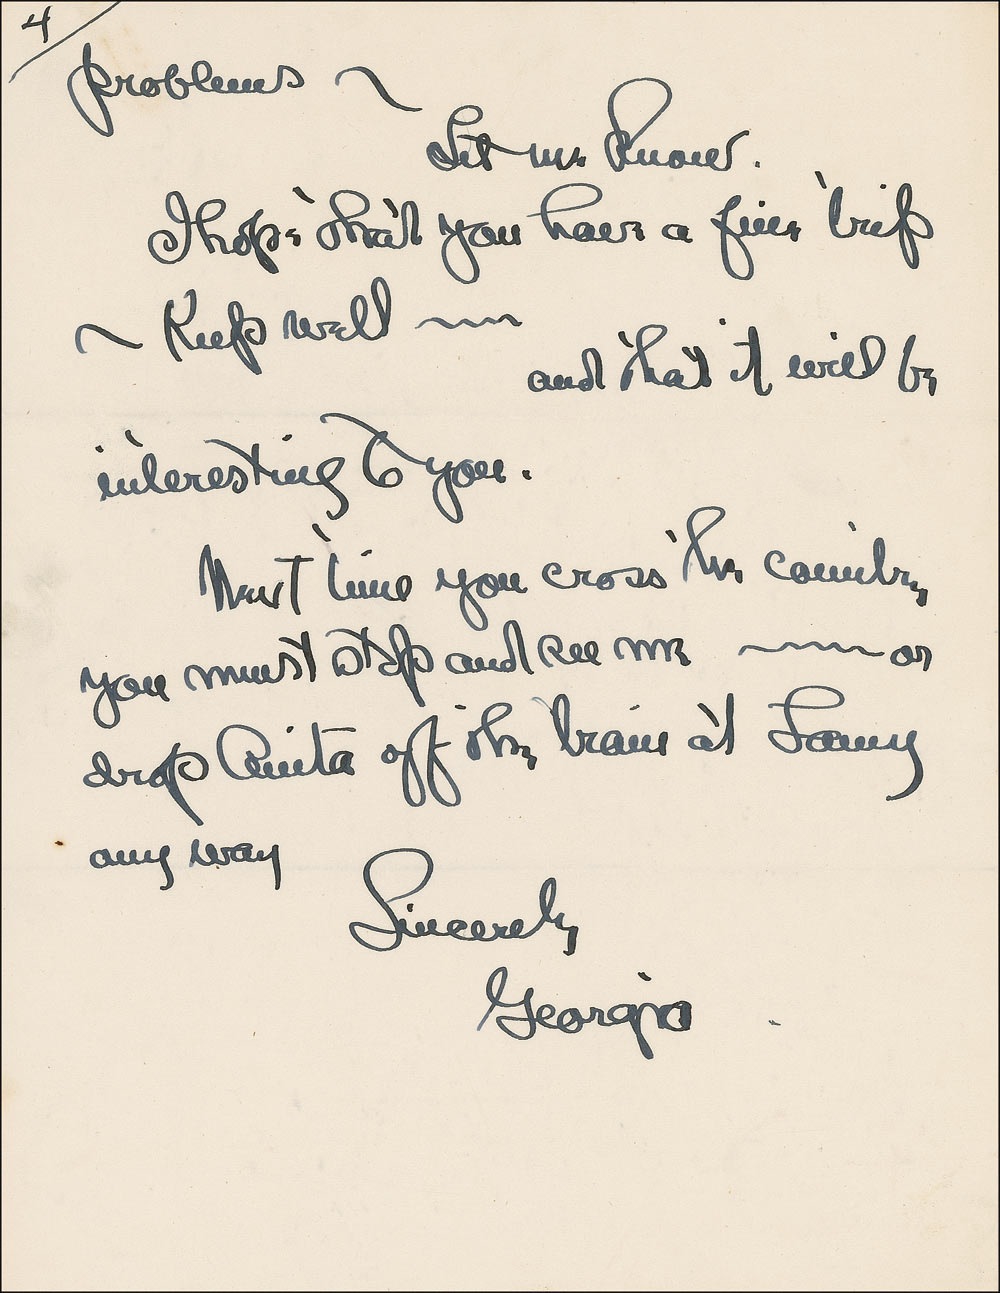 4
problems ~
Let me know.
I hope that you have a fine trip
~ Keep well ~~
and that it will be
interesting to you.
Next time you cross the country
you must stop and see me ~~~ or
drop Anita off the train at Lamy
any way
Sincerely
Georgia